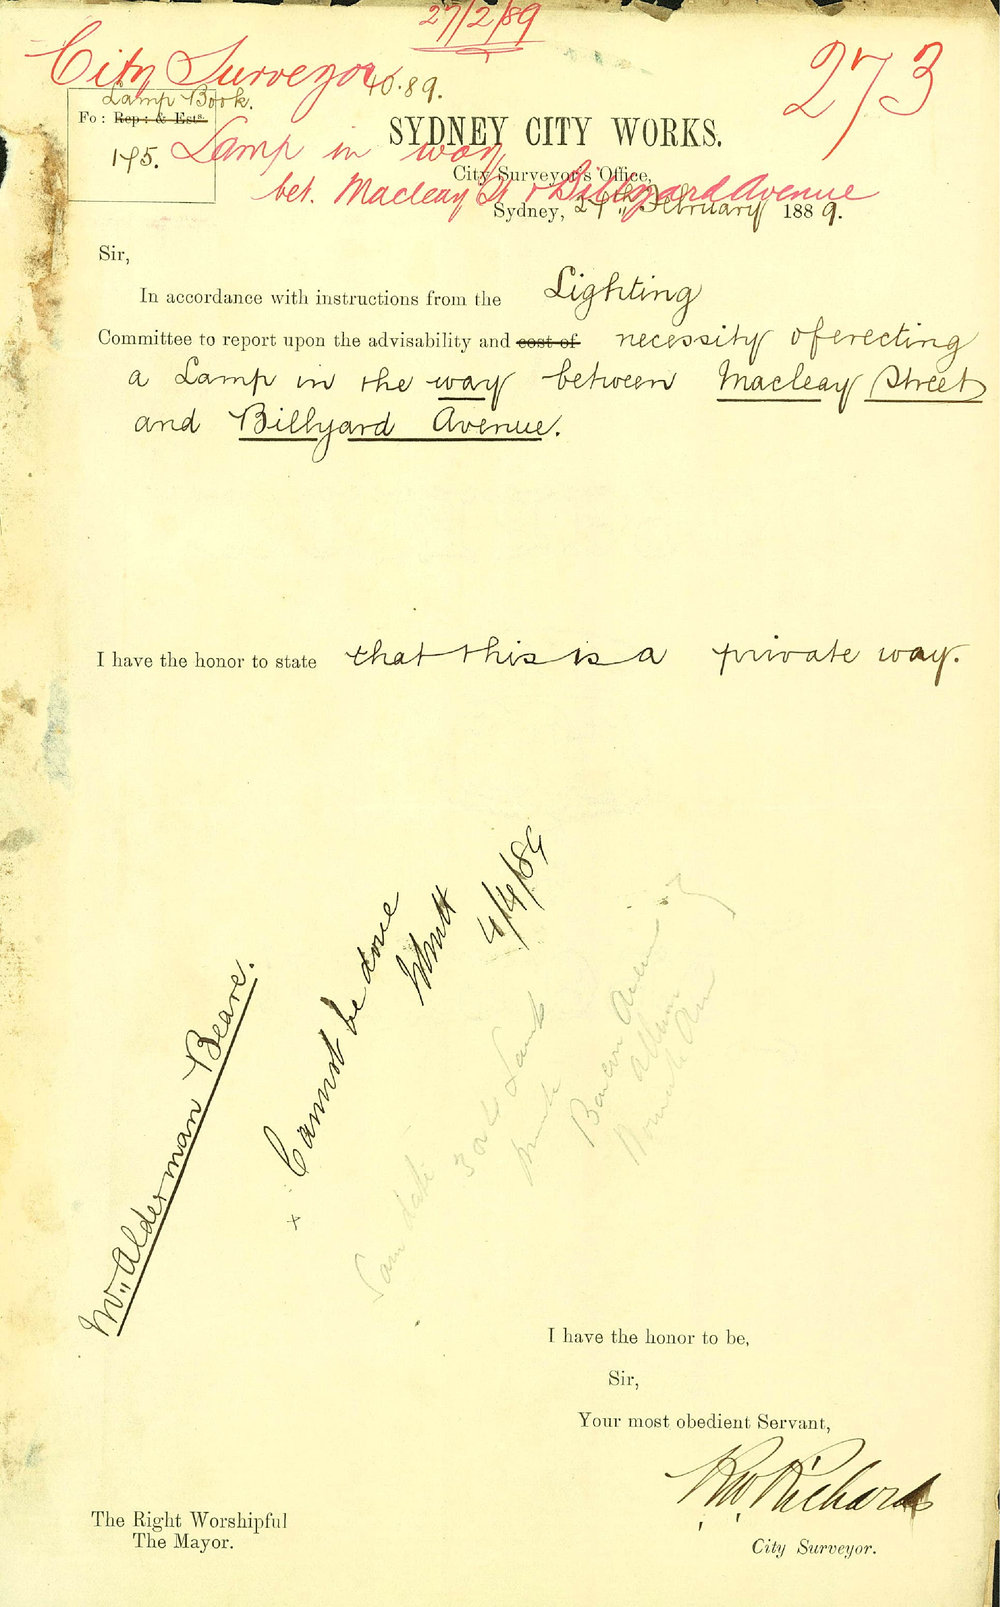 27/2/89
City Surveyor
273
40.89.
Lamp Book.
Fo: Rep: & Ests.
195.
Lamp in way
bet. Macleay St & Billyard Avenue
SYDNEY CITY WORKS.
City Surveyor's Office,
Sydney, 27th February 1889.
Sir,
In accordance with instructions from the Lighting
Committee to report upon the advisability and cost of necessity of erecting
a Lamp in the way between Macleay Street
and Billyard Avenue.
I have the honor to state that this is a private way.
Mr. Alderman Beare.
x Cannot be done
4/4/89
I have the honor to be,
Sir,
Your most obedient Servant,
RW Richards
City Surveyor.
The Right Worshipful
The Mayor.